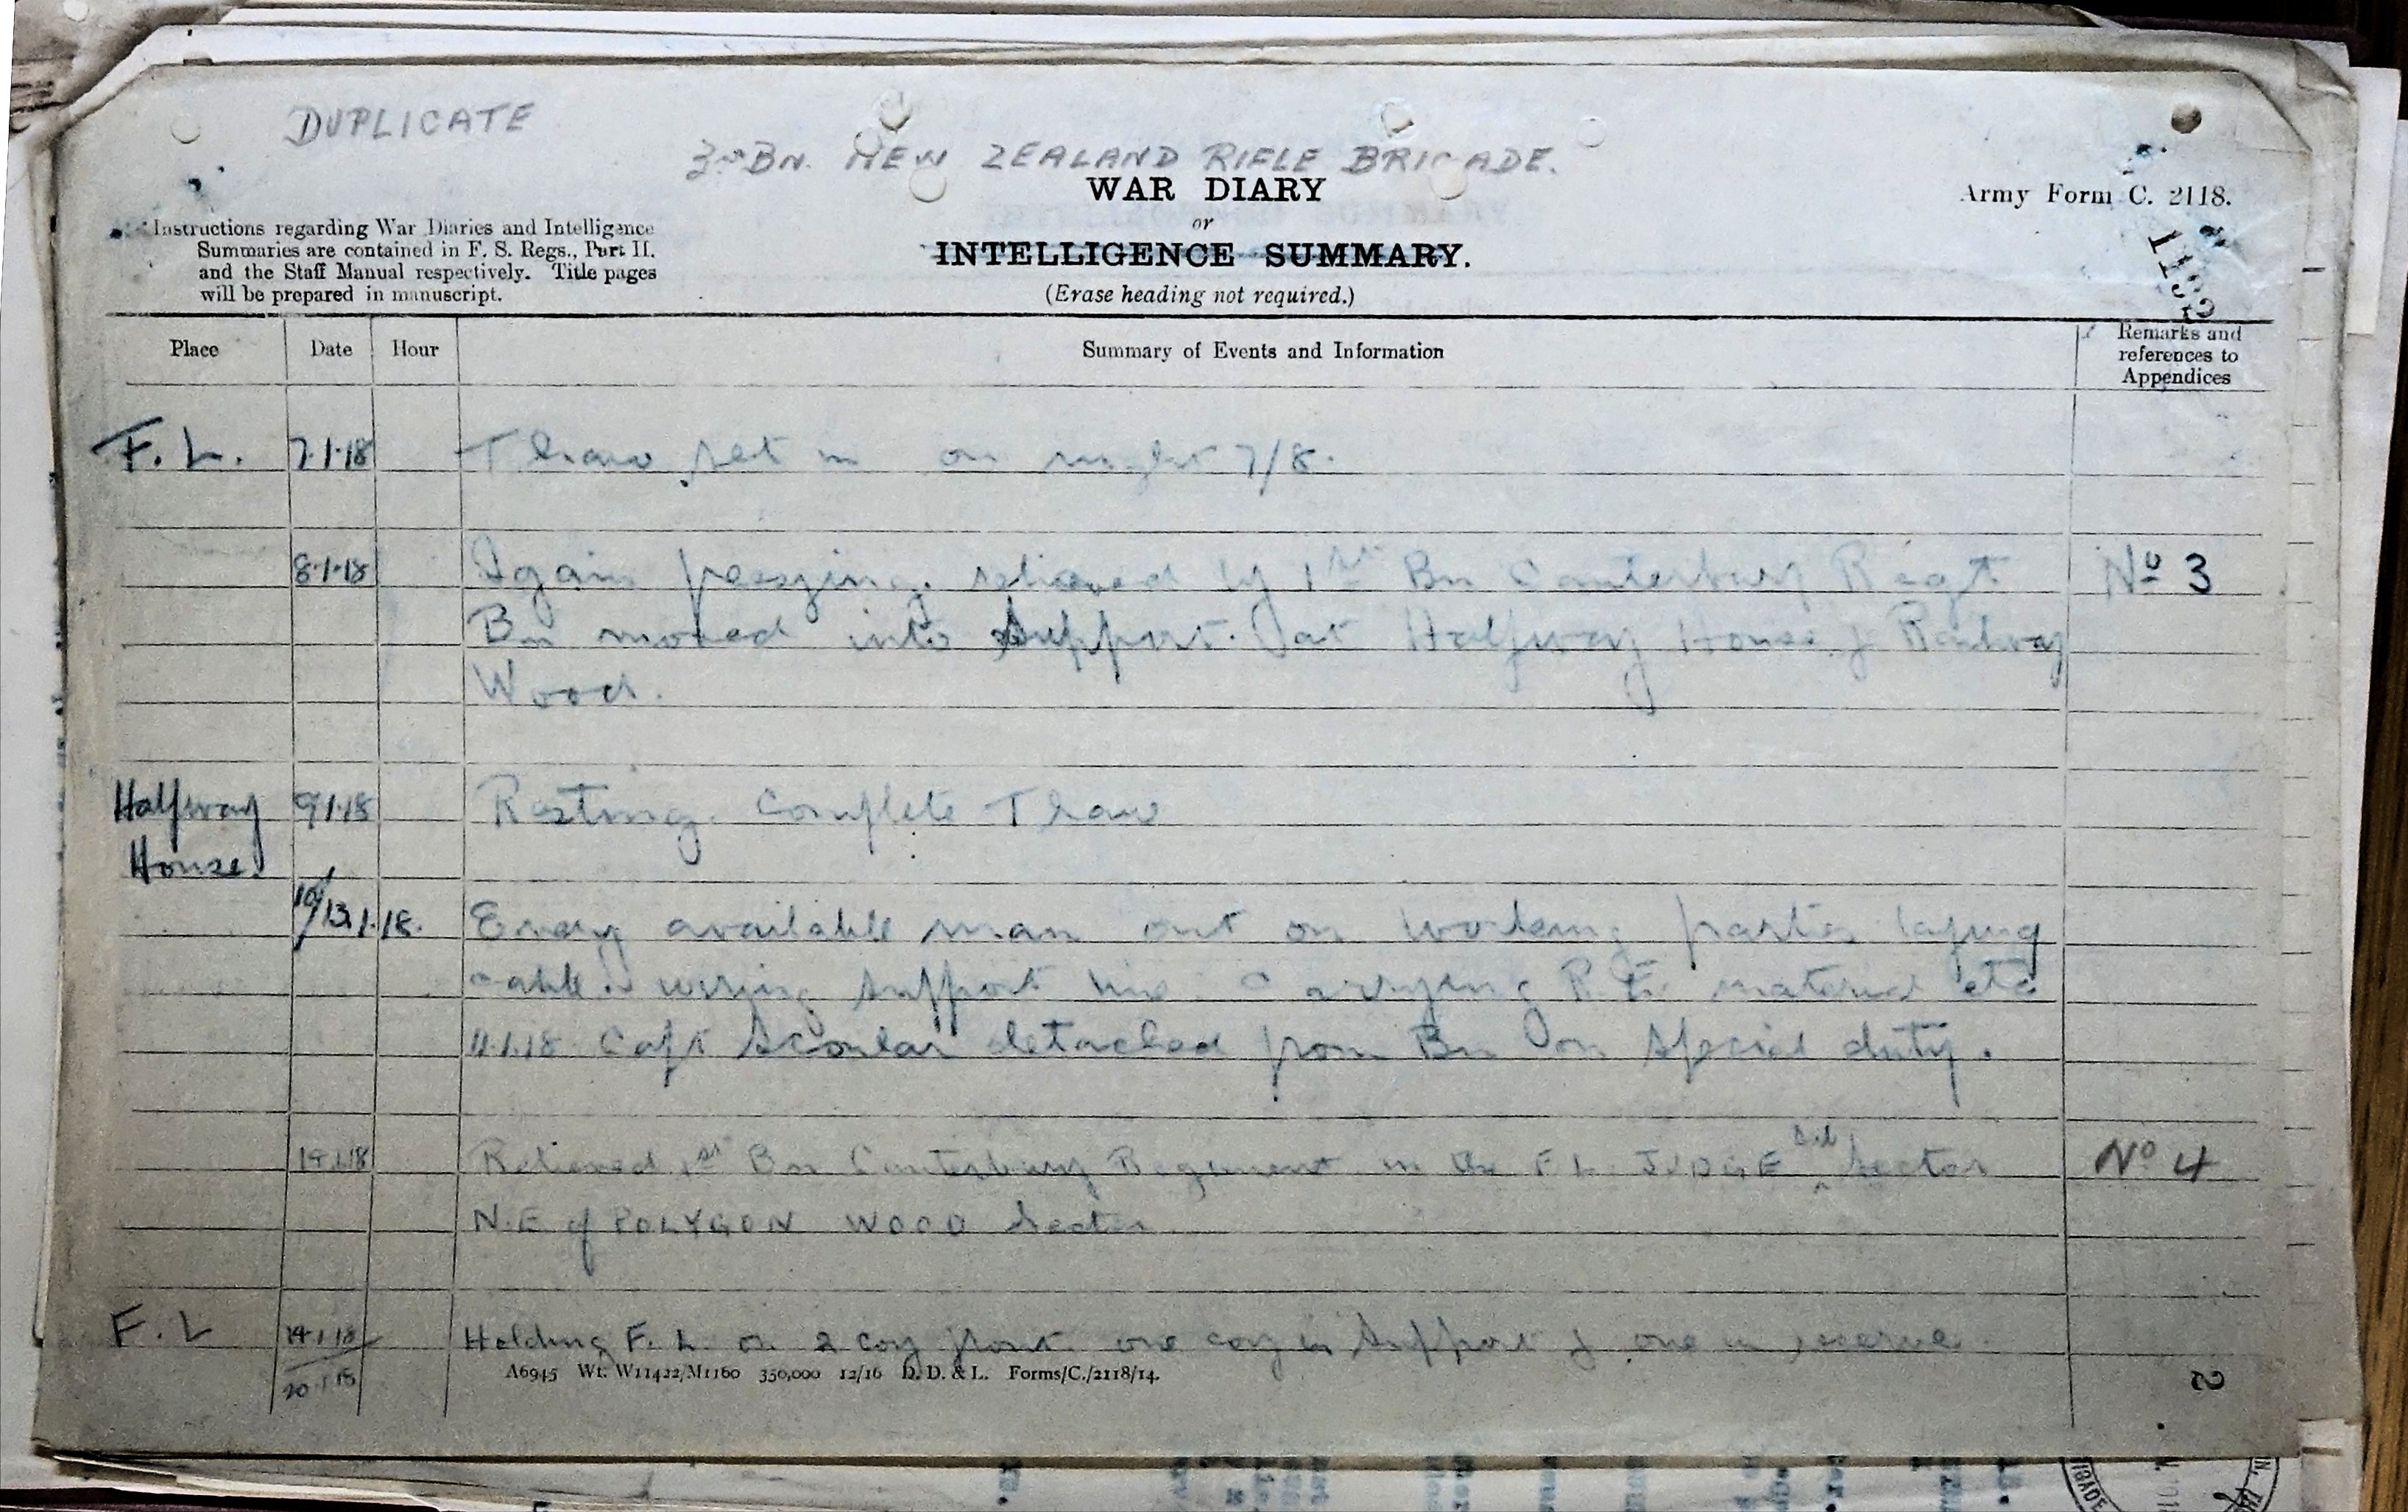 DUPLICATE
3rd BN. NEW ZEALAND RIFLE BRIGADE.
WAR DIARY
or
INTELLIGENCE SUMMARY.
(Erase heading not required.)
Army Form C. 2118.
Instructions regarding War Diaries and Intelligence
Summaries are contained in F. S. Regs., Part II.
and the Staff Manual respectively. Title pages
will be prepared in manuscript.
Place Date Hour Summary of Events and Information Remarks and
references to
Appendices
F. L. 7.1.18 Thaw set in on night 7/8.
8.1.18 Again freezing. relieved by 1st Bn Canterbury Regt No 3
Bn moved into Support. at Halfway House & Railway
Wood.
Halfway 9.1.18 Resting. Complete Thaw
House.
10/13.1.18. Every available man out on working parties laying
cable. wiring support line. Carrying R.E. material etc
11.1.18 Capt Scoular detached from Bn on special duty.
14.1.18 Relieved 1st Bn Canterbury Regiment in the F L. JUDGE Sub Sector No 4
N.E of POLYGON WOOD Sector
F. L 14.1.18 Holding F. L. on 2 coy front. one coy in Support & one in reserve.
20.1.18
A6945 Wt. W11422/M1160 350,000 12/16 D. D. & L. Forms/C./2118/14.
2